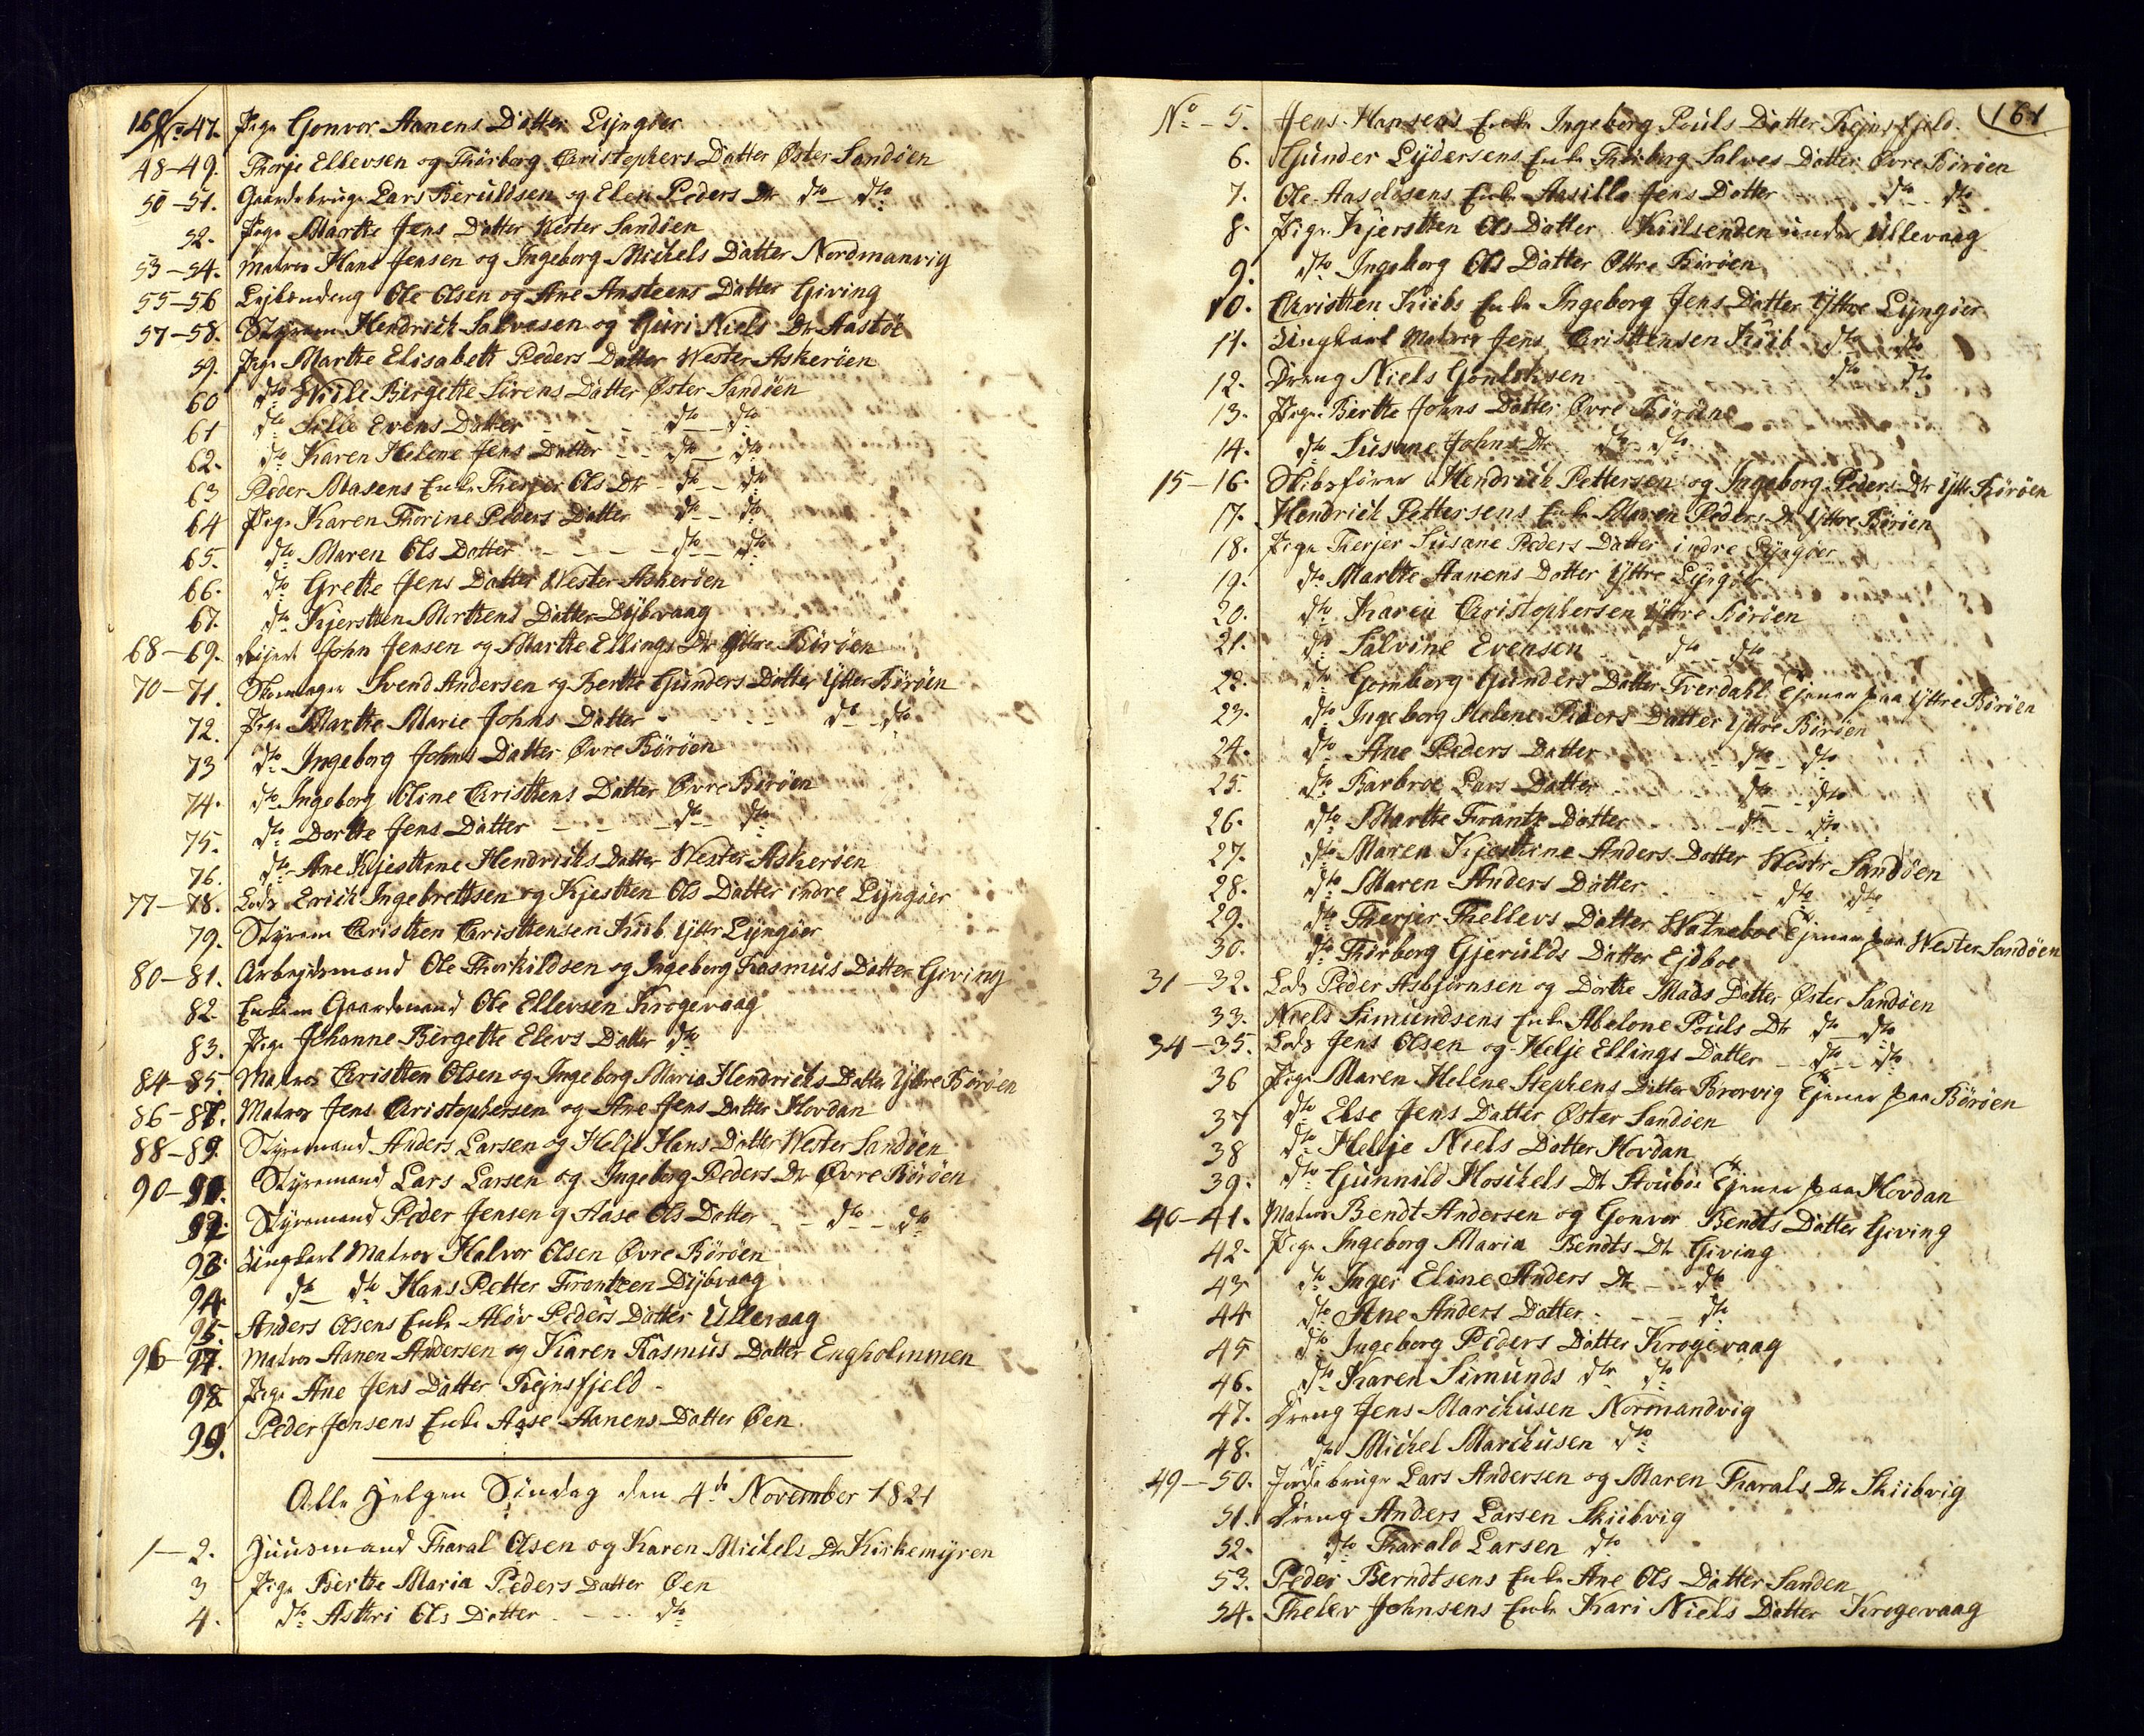 160
No 47. Pige Gonvor Aanens Datter Lyngøer
48-49. Thorje Ellevsen og Thørborg Christophers Datter Øster Sandøen
50-51. Gaardebruger Lars Beruldsen og Elen Peders Dr dto dto
52. Pige Marthe Jens Datter Wester Sandøen
53-54. Matros Hans Jensen og Ingeborg Michels Datter Nordmanvig
55-56 Ole Olsen og Ane Ansteens Datter Giving
57-58. Styrm Hendrich Salvesen og Guri Niels Dr Aastøe
59. Pige Marthe Elisabeth Peders Datter Wester Askerøen
60 dto Nille Birgette Sørens Datter Øster Sandøen
61 dto Sille Evens Datter - - - dto dto
62. dto Karen Helene Jens Datter - - dto dto
63 Peder Masens Enke Therjer Ols Dtr - dto - dto
64 Pige Karen Thorine Peders Datter dto - dto
65. dto Maren Ols Datter - - - - dto - dto
66. dto Grethe Jens Datter Wester Askerøen
67. dto Kjersthen Morthens Datter Dybvaag
68-69. John Jensen og Marthe Ellings Dtr Yttre Børøen
70-71. Svend Andersen og Berthe Gunders Datter Ytter Børøen
72. Pige Marthe Marie Johns Datter - - - - dto - dto
73 dto Ingeborg Johns Datter Øvre Børøen
74. dto Ingeborg Oline Cristhens Datter Øvre Børøen
75. dto Dorthe Jens Datter - - - dto - dto
76. dto Ane Kjesthine Hendrichs Datter Wester Askerøen
77-78. Lods Erich Ingebrethsen og Kjesthen Ols Datter indre Lyngøer
79. Styrm Cristhen Cristhensen Kiib Yttr Lyngøer
80-81. Arbejdsmand Ole Thorkildsen og Ingeborg Rasmus Datter Giving
82. Enkem Gaardmand Ole Ellevsen Krogevaag
83. Pige Johanne Birgette Elevs Datter dto
84-85. Matros Cristhen Olsen og Ingeborg Maria Hendrichs Datter Yttre Børøen
86-87. Matros Jens Christophersen og Ane Jens Datter Hovdan
88-89. Styremand Anders Larsen og Helje Hans Datter Wester Sandøen
90-91. Styremand Lars Larsen og Ingeborg Peders Dr Øvre Børøen
92. Styremand Peder Jensen og Aase Ols Datter - - dto - dto
93. Ungkarl Matros Halvor Olsen Øvre Børøen
94. dto dto Hans Petter Frantzen Dybvaag
95. Anders Olsens Enke Aløv Peders Datter Ullevaag
96-97. Matros Aanen Andersen og Karen Rasmus Datter Engholmmen
98. Pige Ane Jens Datter Rejnsfjeld -
99. Peder Jensens Enke Aase Aanens Datter Øen
Alle Helgen Søndag den 4de November 1821
1-2. Huusmand Tharal Olsen og Karen Michels Dr Kirkemyren
3 Pige Berthe Maria Peders Datter Øen
4. dto Asthri Ols Datter - - - dto
161
No - 5. Jens Hansens Enke Ingeborg Pouls Datter Rejnsfjeld
6. Gunder Lydersens Enke Thørborg Salves Datter Øvre Børøen
7. Ole Aaselosens Enke Aasille Jens Datter - - dto dto
8. Pige Kjersthen Ols Datter Kiilsenden under Ullevaag
9. dto Ingeborg Ols Datter Øttre Børøen
10. Cristhen Kiibs Enke Ingeborg Jens Datter Yttre Lyngøer
11. Ungkarl Matros Jens Cristhensen Kiib dto dto
12. Dreng Niels Gonlohsen dto dto
13. Pige Berthe Johns Datter Øvre Børøene
14. dto Susane Johns Dr dto dto
15-16. Skibsfører Hendrich Pettersen og Ingeborg Peders Dtr Yttr Børøen
17. Hendrich Pettersens Enke Maren Peders Dr Yttre Børøen
18. Pige Therjer Susane Peders Datter indre Lyngøer
19. dto Marthe Aanens Datter Yttre Lyngøer
20. dto Karen Christophersen Yttre Børøen
21. dto Salvine Evensen - dto - dto
22. dto Gomborg Gunders Datter Fverdahl Tjenner paa Yttre Børøen
23. dto Ingeborg Helene Peders Datter Yttre Børøen
24. dto Ane Peders Datter - - dto - dto
25. dto Barbroe Lars Datter - - dto - dto
26. dto Marthe Frants Datter - - - dto - - dto
27. dto Maren Kjesthine Anders Datter Wester Sandøen
28. dto Maren Anders Datter - - - dto dto
29. dto Therjer Thellevs Datter Watneboe Tjenner paa Wester Sandøen
30. dto Thørborg Gjerulds Datter Ejdboe
31-32. Lods Peder Asbjørnsen og Dorthe Mads Datter Øster Sandøen
33. Niels Simundsens Enke Abelone Pouls Dr dto dto
34-35. Lods Jens Olsen og Helje Ellings Datter - - dto - dto
36 Pige Maren Helene Stephens Datter Brorvig Tjenner paa Børøen
37 dto Else Jens Datter Øster Sandøen
38 dto Hellje Niels Datter Hovdan
39. dto Gunnild Hosikels Dr Stouboe Tjenner paa Hovdan
40-41. Matros Bendt Andersen og Gonvor Bendts Datter Giving
42. Pige Ingeborg Maria Bendts Dr Giving
43 dto Inger Eline Anders Dr - - dto
44 dto Ane Anders Datter - - - dto
45 dto Ingeborg Peders Datter Krogevaag
46. dto Karen Simunds dtr dto
47. Dreng Jens Marchusen Normandvig
48. dto Michel Marchusen dto
49-50. Jordebruger Lars Andersen og Maren Tharals Dr Skiibvig
51. Dreng Anders Larsen Skiibvig
52. dto Tharald Larsen dto
53. Peder Berndtsens Enke Ane Ols Datter Sanden
54. Thelev Johnsens Enke Kari Niels Datter Krogevaag